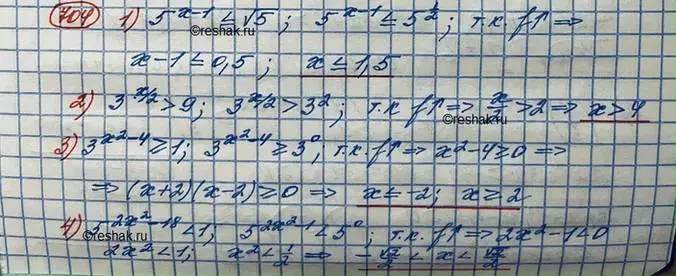 704 1) 5^(x-1) ≤ √5; 5^(x-1) ≤ 5^(1/2); т.к. f↑ ⇒
©reshak.ru
x-1 ≤ 0,5; x ≤ 1,5
2) 3^(x/2) > 9; 3^(x/2) > 3^2; т.к. f↑ ⇒ x/2 > 2 ⇒ x > 4
©reshak.ru
3) 3^(x^2-4) ≥ 1; 3^(x^2-4) ≥ 3^0; т.к. f↑ ⇒ x^2-4 ≥ 0 ⇒
⇒ (x+2)(x-2) ≥ 0 ⇒ x ≤ -2; x ≥ 2
4) 5^(2x^2-18) < 1; 5^(2x^2-1) < 5^0; т.к. f↑ ⇒ 2x^2-1<0
©reshak.ru
2x^2 < 1; x^2 < 1/2 ⇒ -√2/2 < x < √2/2